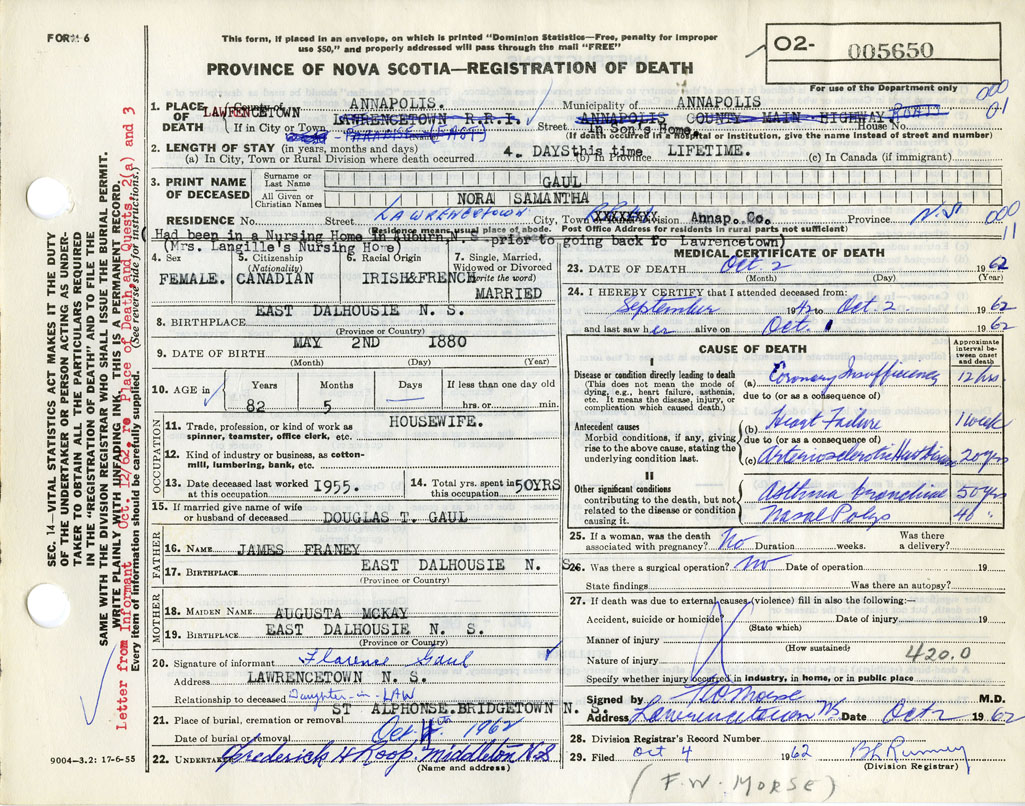 FORM 6
This form, if placed in an envelope, on which is printed "Dominion Statistics—Free, penalty for improper
use $50," and properly addressed will pass through the mail "FREE"
PROVINCE OF NOVA SCOTIA—REGISTRATION OF DEATH
02- 005650
For use of the Department only
000
01
1. PLACE OF DEATH
County of ANNAPOLIS.
Municipality of ANNAPOLIS
LAWRENCETOWN
LAWRENCETOWN R.R.I.
ANNAPOLIS COUNTY MAIN HIGHWAY
If in City or Town
Street in Son's Home. House No.
(If death occurred in Hospital or Institution, give the name instead of street and number)
2. LENGTH OF STAY (in years, months and days)
(a) In City, Town or Rural Division where death occurred 4. DAYS this time (b) In Province LIFETIME. (c) In Canada (if immigrant)
3. PRINT NAME OF DECEASED
Surname or Last Name GAUL
All Given or Christian Names NORA SAMANTHA
RESIDENCE No. Street LAWRENCETOWN City, Town or Rural Division XXXXXXXX Annap. Co. Province N.S
000
11
(Residence means usual place of abode. Post Office Address for residents in rural parts not sufficient)
(Had been in a Nursing Home in Auburn,N S -prior to going back to Lawrencetown)
(Mrs. Langille's Nursing Home)
4. Sex FEMALE.
5. Citizenship (Nationality) CANADIAN
6. Racial Origin IRISH&FRENCH
7. Single, Married, Widowed or Divorced (write the word) MARRIED
8. BIRTHPLACE EAST DALHOUSIE N. S.
(Province or Country)
9. DATE OF BIRTH MAY 2ND 1880
(Month) (Day) (Year)
10. AGE in Years 82 Months 5 Days — If less than one day old hrs. or min.
OCCUPATION
11. Trade, profession, or kind of work as spinner, teamster, office clerk, etc. HOUSEWIFE.
12. Kind of industry or business, as cotton-mill, lumbering, bank, etc.
13. Date deceased last worked at this occupation 1955.
14. Total yrs. spent in this occupation 50YRS
15. If married give name of wife or husband of deceased DOUGLAS T. GAUL
FATHER
16. NAME JAMES FRANEY
17. BIRTHPLACE EAST DALHOUSIE N. S.
(Province or Country)
MOTHER
18. MAIDEN NAME AUGUSTA MCKAY
19. BIRTHPLACE EAST DALHOUSIE N. S.
(Province or Country)
20. Signature of informant Florence Gaul
Address LAWRENCETOWN N. S.
Relationship to deceased Daughter-in-LAW
ST ALPHONSE.BRIDGETOWN N. S.
21. Place of burial, cremation or removal
Date of burial or removal Oct. 4th 1962
22. UNDERTAKER Frederick H Roop. Middleton N.S
(Name and address)
MEDICAL CERTIFICATE OF DEATH
23. DATE OF DEATH Oct. 2 1962
(Month) (Day) (Year)
24. I HEREBY CERTIFY that I attended deceased from:
September 1942 to Oct. 2. 1962
and last saw her alive on Oct. 1 1962
CAUSE OF DEATH
Approximate interval between onset and death
I
Disease or condition directly leading to death
(This does not mean the mode of dying, e.g., heart failure, asthenia, etc. It means the disease, injury, or complication which caused death.)
(a) Coronary Insufficiency 12 hrs.
due to (or as a consequence of)
Antecedent causes
Morbid conditions, if any, giving rise to the above cause, stating the underlying condition last.
(b) Heart Failure 1 week
due to (or as a consequence of)
(c) Arteriosclerotic Heart Disease 20 yrs
II
Other significant conditions
contributing to the death, but not related to the disease or condition causing it.
Asthma bronchial 50 yrs
Nasal Polyps 40 "
25. If a woman, was the death associated with pregnancy? No Duration weeks. Was there a delivery?
26. Was there a surgical operation? No Date of operation 19
State findings Was there an autopsy?
27. If death was due to external causes (violence) fill in also the following:—
Accident, suicide or homicide Date of injury 19
(State which)
Manner of injury
(How sustained)
Nature of injury 420.0
Specify whether injury occurred in industry, in home, or in public place
Signed by F W Morse M.D.
Address Lawrencetown NS Date Oct 2 1962
28. Division Registrar's Record Number
29. Filed oct 4 1962
(Division Registrar)
(F.W. MORSE)
SEC. 14—VITAL STATISTICS ACT MAKES IT THE DUTY
OF THE UNDERTAKER OR PERSON ACTING AS UNDER-
TAKER TO OBTAIN ALL THE PARTICULARS REQUIRED
IN THE "REGISTRATION OF DEATH" AND TO FILE THE
SAME WITH THE DIVISION REGISTRAR WHO SHALL ISSUE THE BURIAL PERMIT.
WRITE PLAINLY WITH UNFADING INK. THIS IS A PERMANENT RECORD.
Every item of information should be carefully supplied. (See reverse side for instructions.)
Letter from Informant Oct. 12/62.re Place of Death,and Quests. 2(a) and 3
9004—3.2: 17-6-55